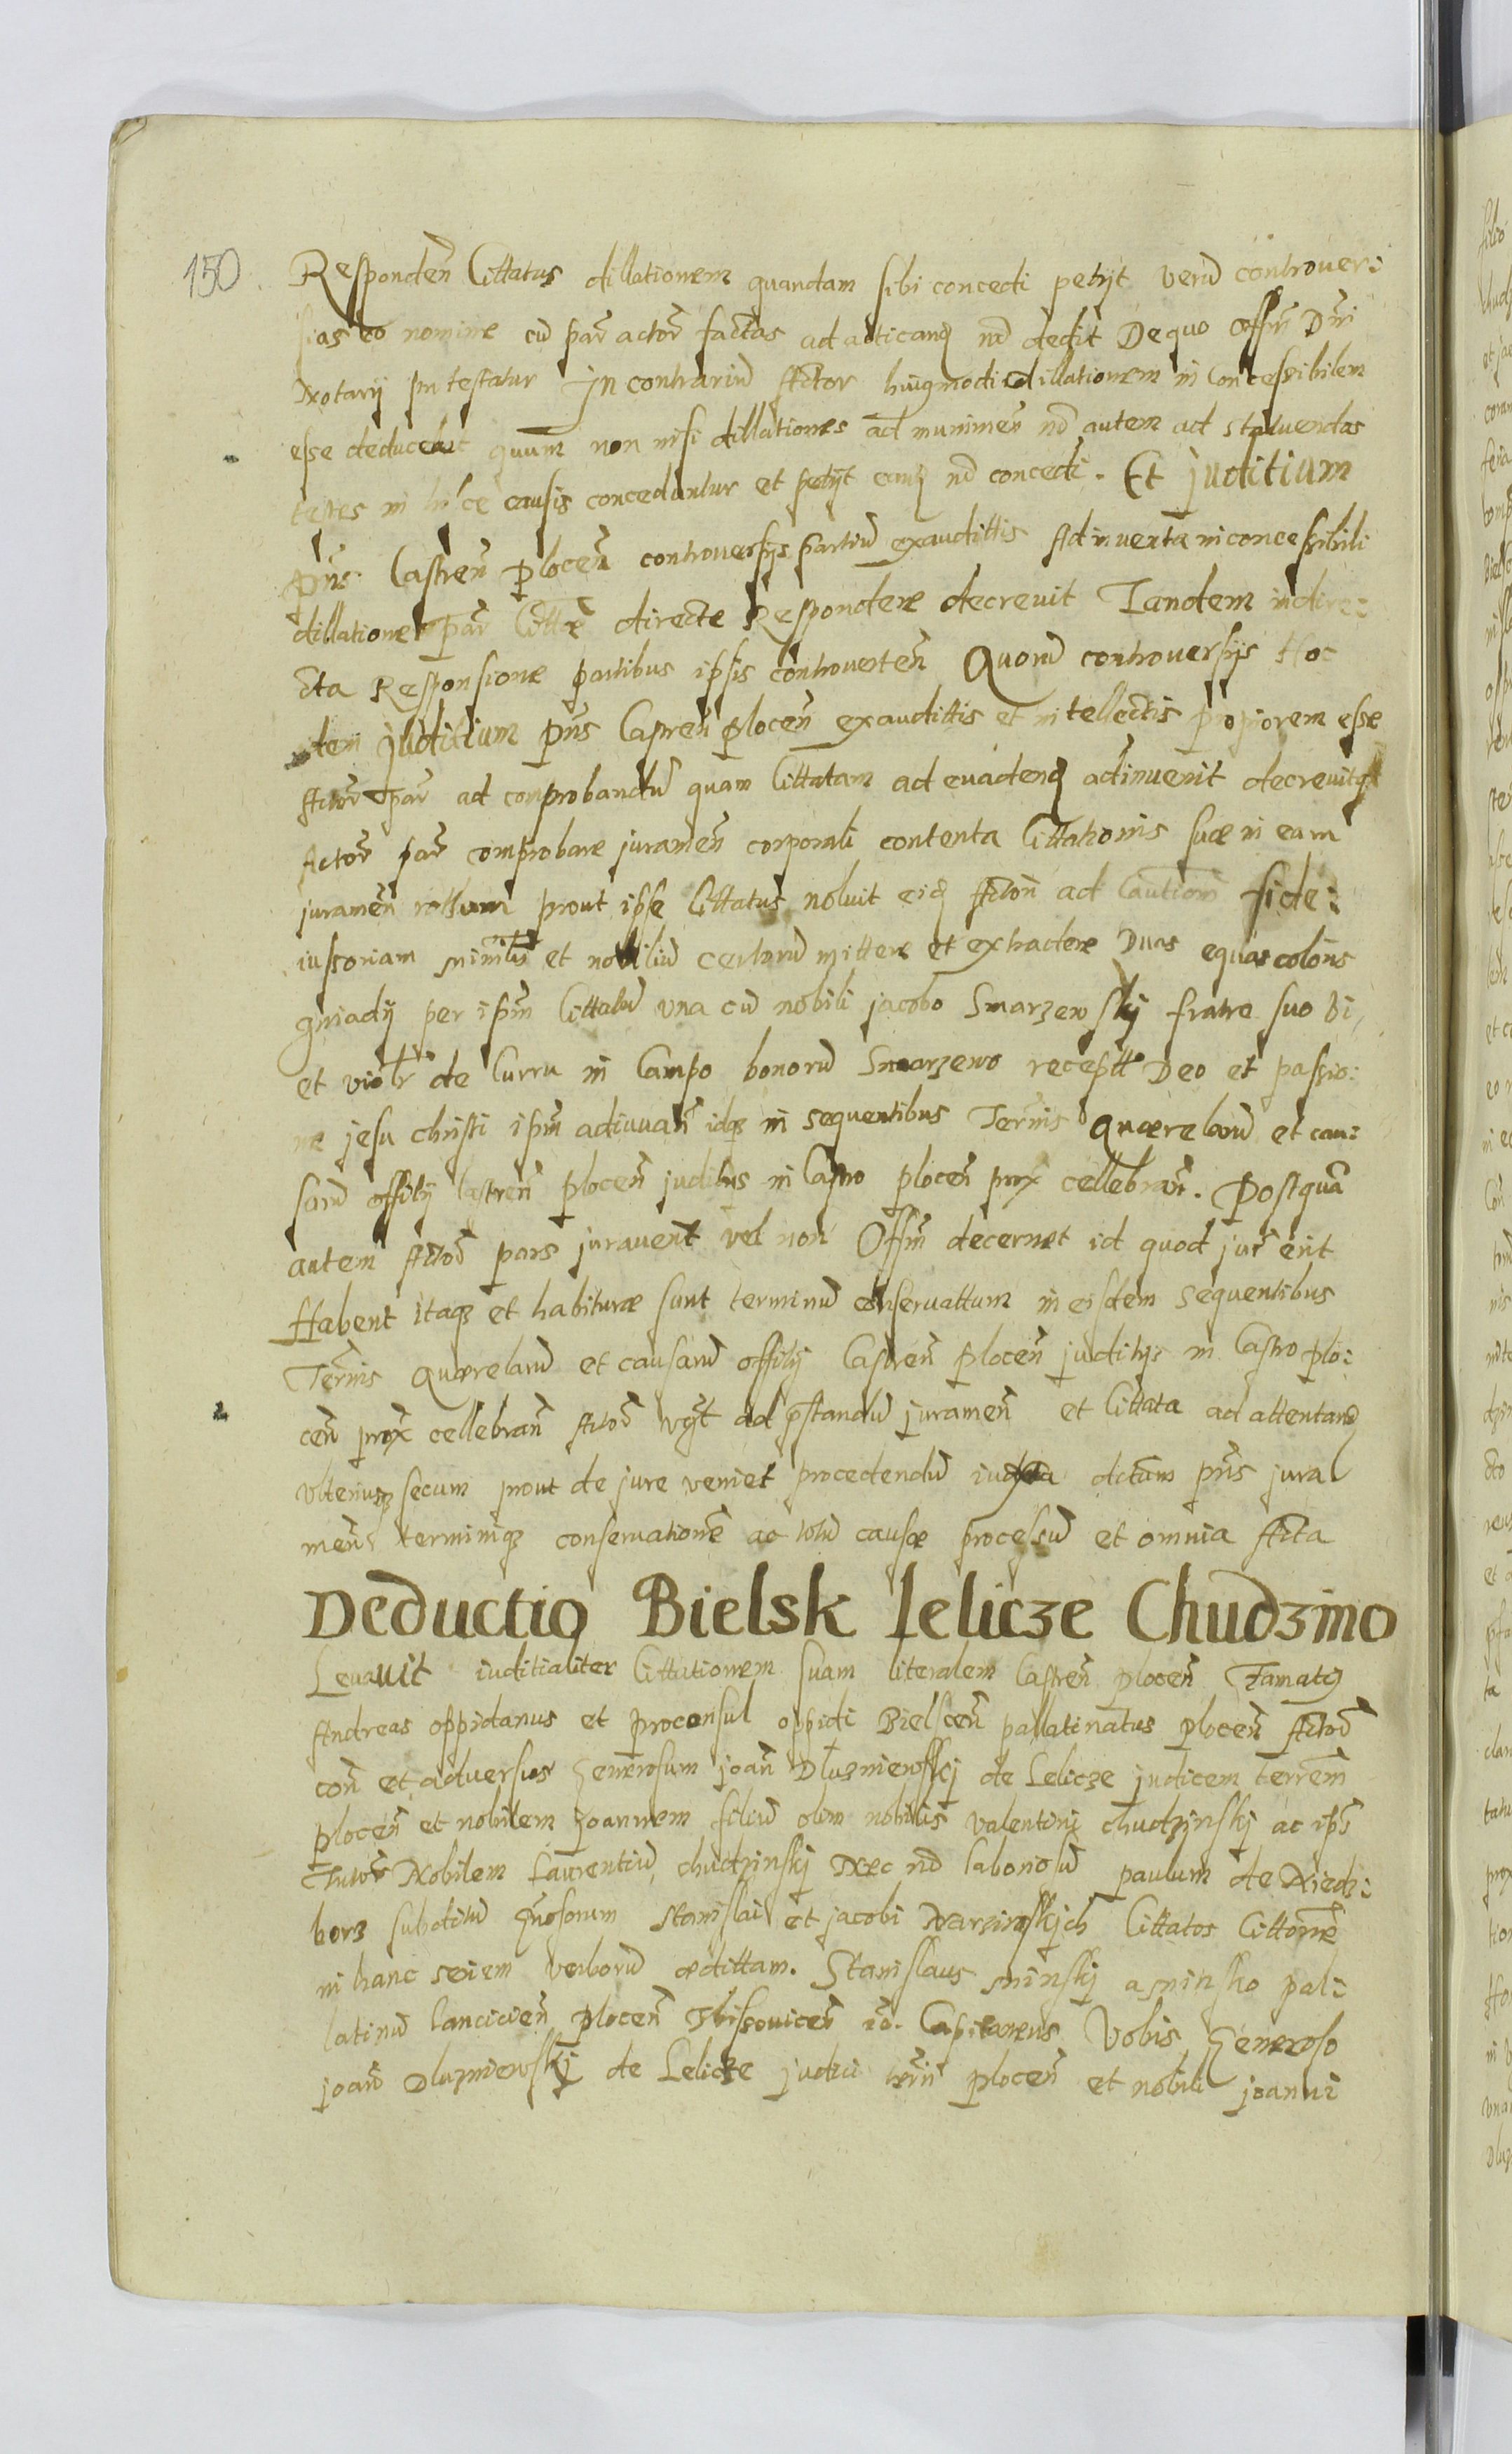 150.
Responden̄ Cittatus dillationem quandam sibi concedi petijt verū controver:
sias eo nomine cū par̄ actor̄ factas ad acticand nō dedit De quo Offm̄ Dn̄i
Notarij protestatur In contrariū Actor huiusmodi dillationem in concessibilem
esse deducebat quum non nisi dillationes ad munimen̄ nō autem ad statuendas
testes in hisce causis concedantur et petijt eand nō concedi. Et Juditium
pn̄s Castren̄ plocen̄ controuersijs partiū exaudittis Adinventa in concessibili
dillatione par̄ Citta̅e directe Respondere decrevit Tandem in dire:
cta Responsione partibus ipsis controverten̄ Quorū controversijs Hoc
idem juditium pn̄s Castren̄ plocen̄ exaudittis et intellectis propiorem esse
Actor̄ par̄ ad comprobandū quam Cittatam ad evadend adinvenit decrevitq
Actor̄ par̄ comprobare juramen̄ corporali contenta Cittationis suæ in eam
juramen̄ rottam prout ipse Cittatus noluit eid Actori ad Cautiom̄ fide:
iussoriam et nobiliū certorū mittere et extradere Duas equas coloris
gniadij per ipm̄ Cittatū una cū nobili jacobo Smarzewskj fratre suo vi
et violr̄ de Curru in Campo bonorū Smarzewo receptt Deo et passio:
ne jesu christi ipm̄ adiuuan̄ idq in sequentibus Termis Quærelarū et cau:
sarū offitij Castren̄ plocen̄ juditijs in Castro plocen̄ prox cellebran̄. Postquā
autem Actor̄ pars juraverit vel non Offm̄ decernet id quod jur̄ erit
Habent itaq et habituræ sunt terminū conservattum in eisdem sequentibus
Termis Quærelarū et causarū offitij Castren̄ plocen̄ juditijs in Castro plo:
cen̄ prox̄ cellebran̄ Actor̄ ad p̄standū juramen̄ et Cittata ad attentand
vlteriusq secum prout de jure veniet procedendū iuxta dictum pn̄s jura
men̄ terminiq conservationē ac totū causæ processū et omnia Acta
Deductio Bielsk Lelicze Chudzino
Levavit iuditialiter Cittationem suam literalem Castren̄ plocen̄ Famatq
Andreas oppidanus et proconsul oppidi Bielscen̄ pallatinatus plocen̄ Actor̄
con̄ et adversus Generosum joan̄ Dluzniewskj de Lelicze judicem terrem̄
plocen̄ et nobilem Joannem filiū olim nobilis valentini chudzinskj ac ips̄
Tutor̄ Nobilem Laurentiū chudzinskj Nec nō laboriosū paulum de Niedz:
borz subditū gn̄osorum Stanislai et jacobi Narzimskich Cittatos Cittoin̄e
in hanc seriem verborū ædittam. Stanislaus minskj a minsko pal:
latinū lancicien̄ plocen̄ rō. Capitaneus Vobis Generoso
joan̄ Dluzniewskj de Lelicze judici terrn̄ plocen̄ et nobili joanni